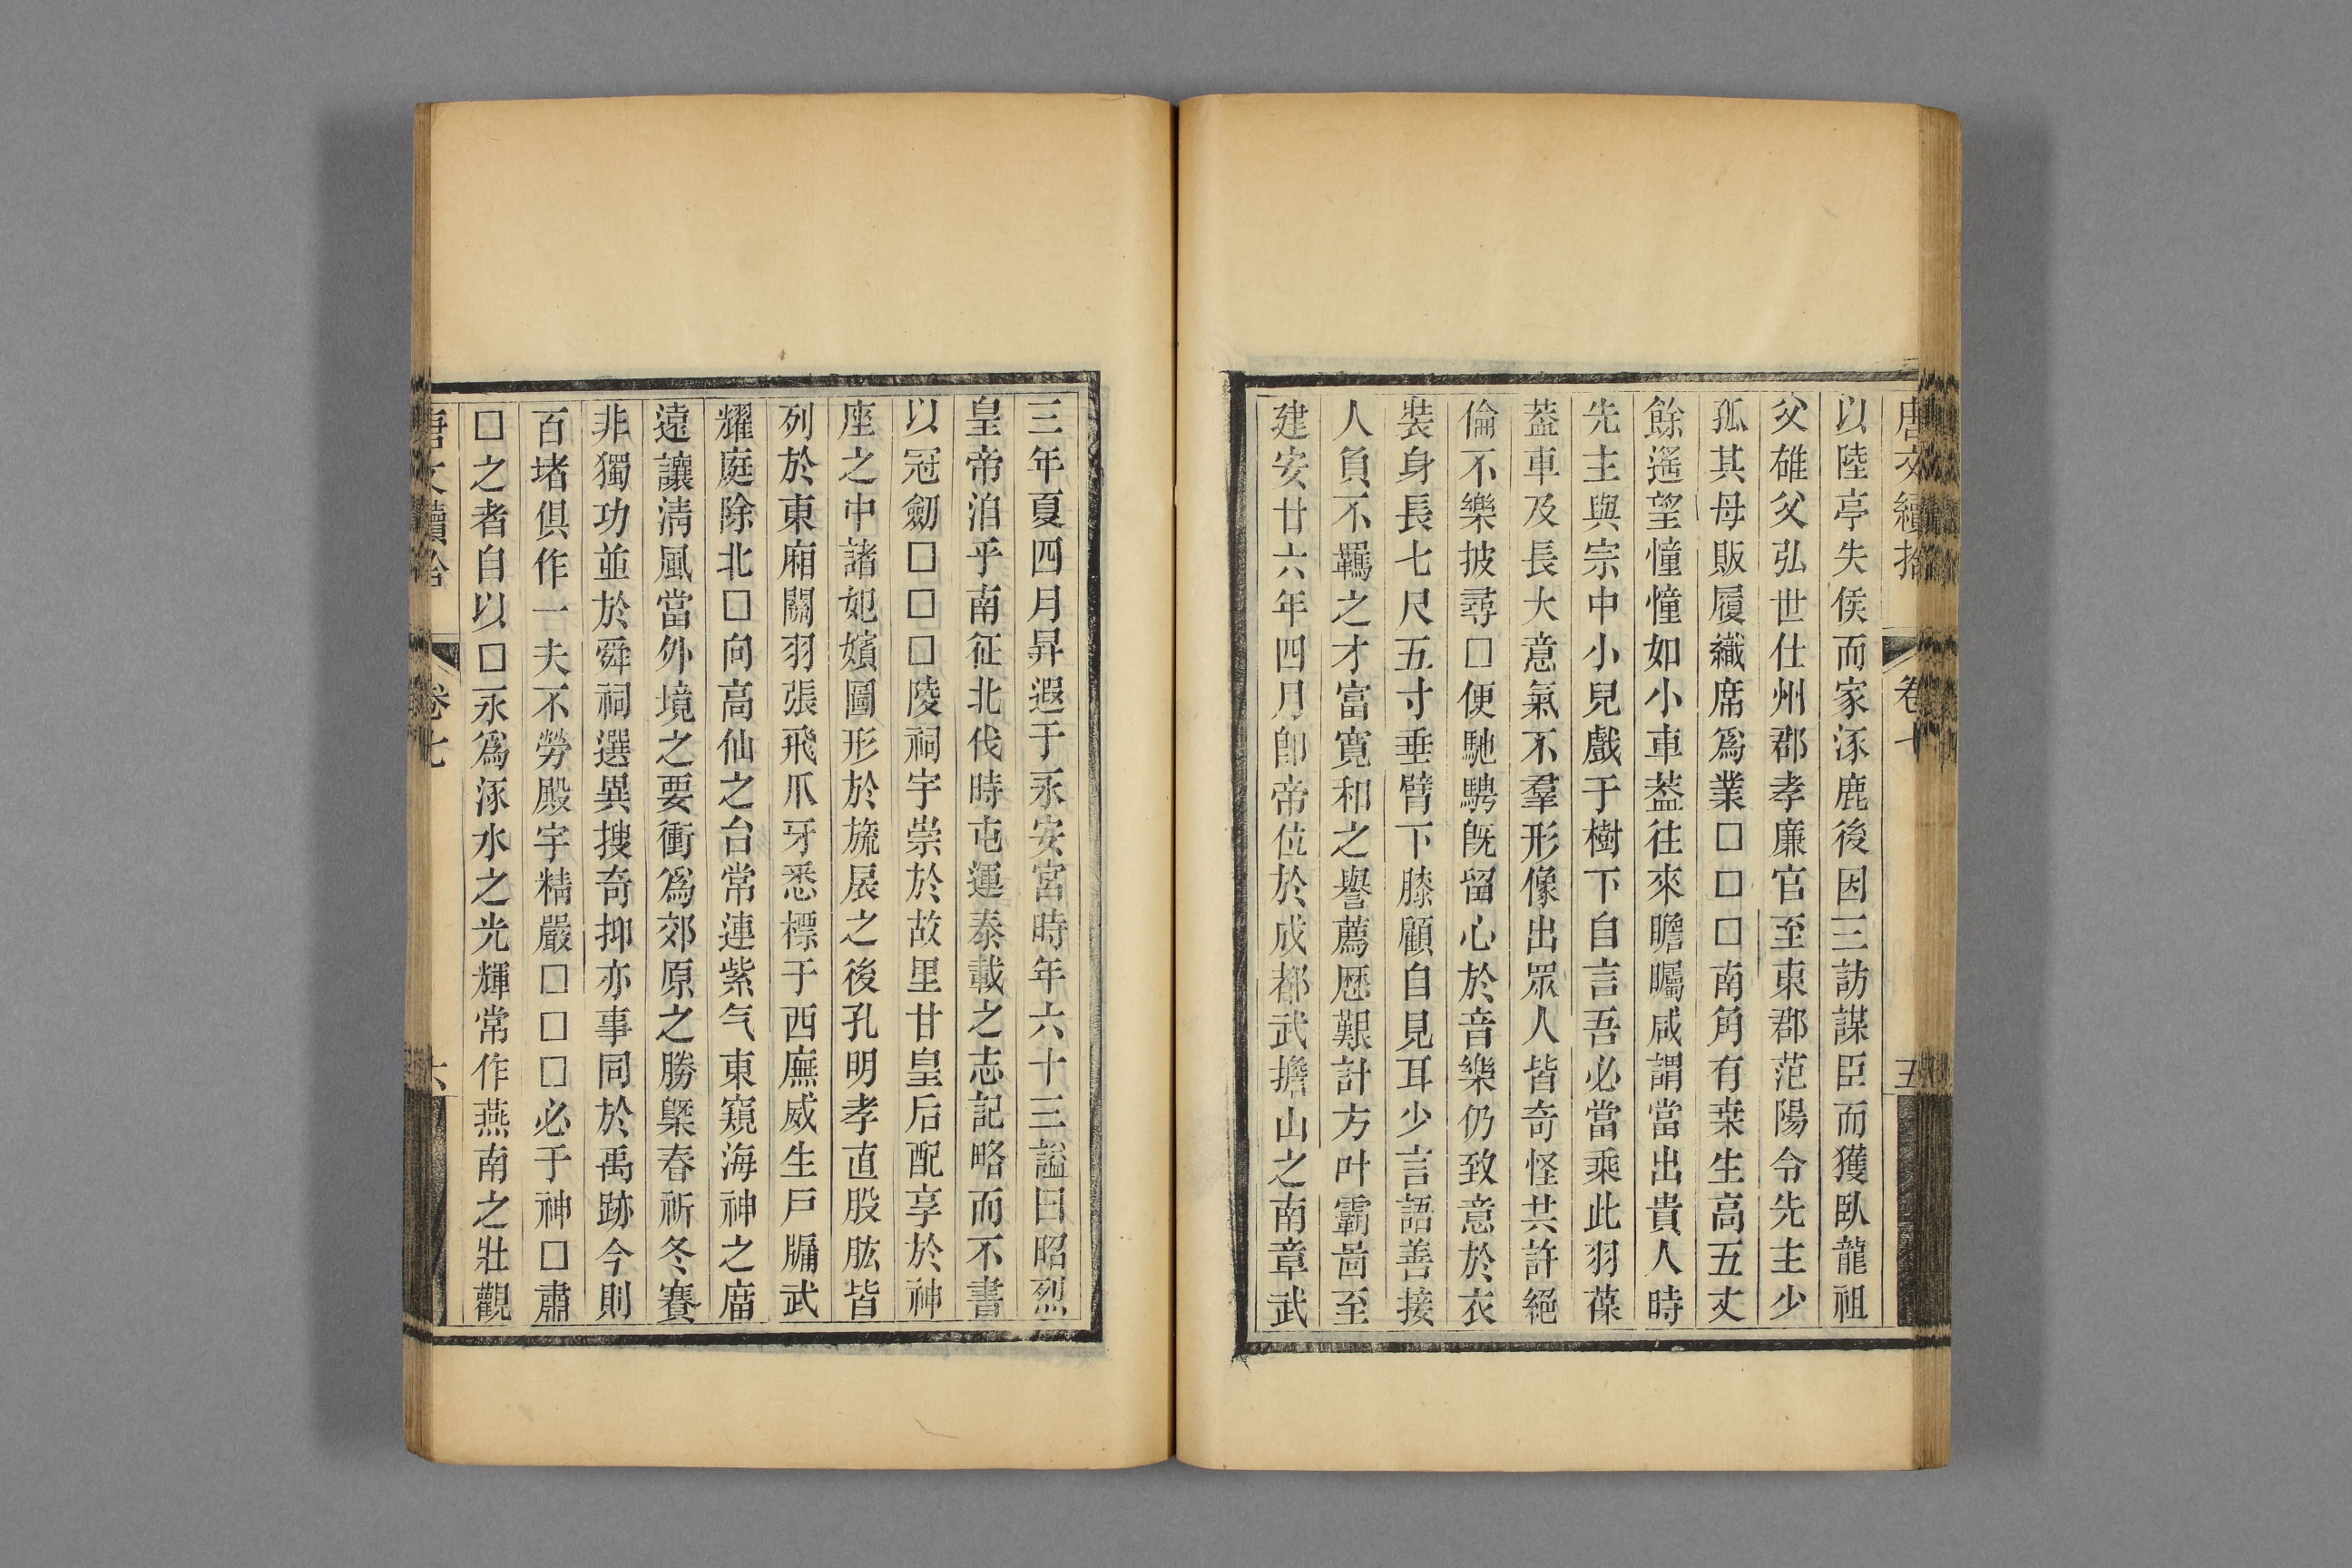 唐文續拾 卷七 五
以陸亭失侯而家涿鹿後因三訪謀臣而獲臥龍祖
父雄父弘世仕州郡孝廉官至東郡范陽令先主少
孤其母販履織席爲業□□□南角有桒生高五丈
餘遙望憧憧如小車葢往來瞻矚咸謂當出貴人時
先主與宗中小兒戲于樹下自言吾必當乘此羽葆
葢車及長大意氣不羣形像出眾人皆奇怪共許絕
倫不樂披尋□便馳騁旣留心於音樂仍致意於衣
裝身長七尺五寸垂臂下膝顧自見耳少言語善接
人負不羈之才富寬和之譽薦歷艱計方叶霸啚至
建安廿六年四月卽帝位於成都武擔山之南章武
三年夏四月昇遐于永安宮時年六十三謚曰昭烈
皇帝洎乎南征北伐時屯運泰載之志記略而不書
以冠劒□□□陵祠宇崇於故里甘皇后配享於神
座之中諸妃嬪圖形於旒扆之後孔明孝直股肱皆
列於東廂關羽張飛爪牙悉標于西廡威生戶牖武
耀庭除北□向高仙之台常連紫气東窺海神之庿
遠讓淸風當外境之要衝爲郊原之勝槩春祈冬賽
非獨功並於舜祠選異搜奇抑亦事同於禹跡今則
百堵俱作一夫不勞殿宇精嚴□□□必于神□肅
□之者自以□永爲涿水之光輝常作燕南之壯觀
唐文續拾 卷七 六